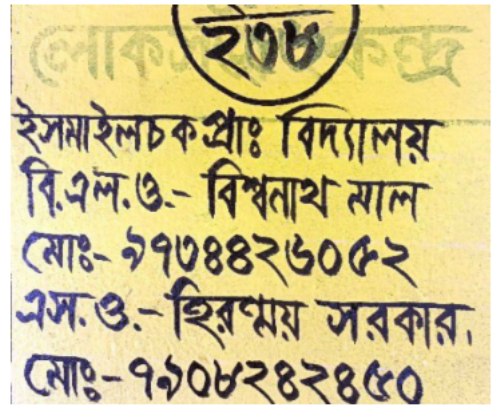 ২৩৮
ইসমাইলচক প্রাঃ বিদ্যালয়
বি.এল.ও.- বিশ্বনাথ মাল
মোঃ- ৯৭৩৪৪২৬০৫২
এস.ও.- হিরণ্ময় সরকার.
মোঃ- ৭৯০৮২৪২৪৫০